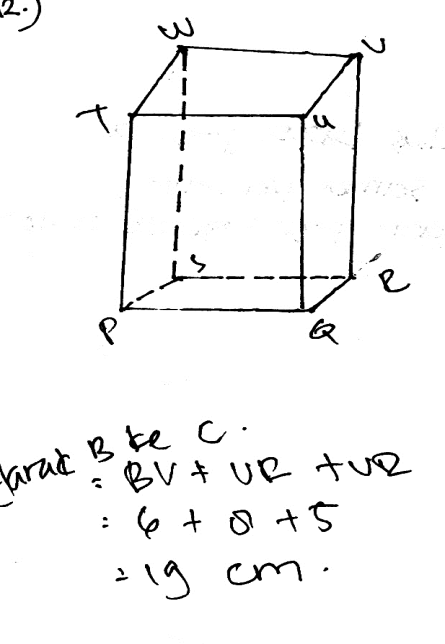 2.)
W V
T U
S R
P Q
Jarak B ke C.
= BV + VR + VR
= 6 + 8 + 5
= 19 cm.